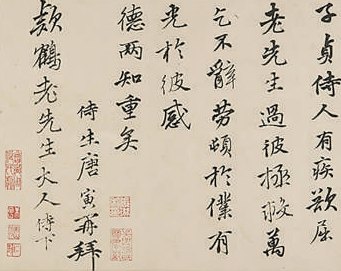 子貞侍人有疾欲屈
老先生過彼拯救萬
乞不辭勞頓於僕有
光於彼感
德两知重矣
侍生唐寅再拜
款鶴老先生大人侍下